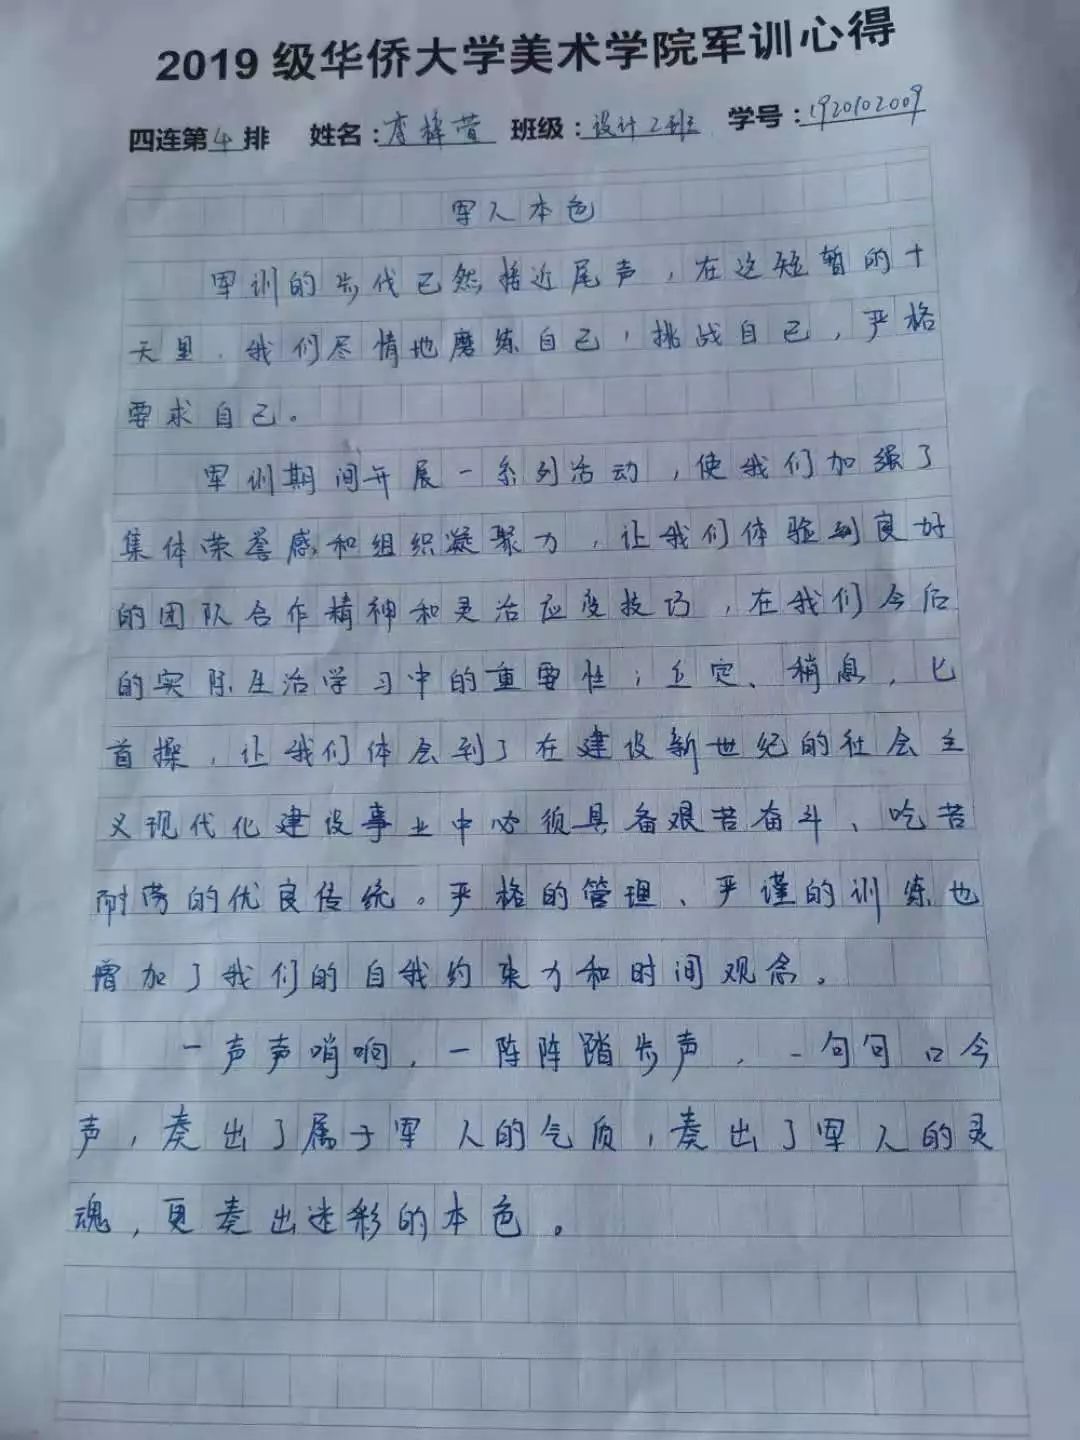 2019级华侨大学美术学院军训心得
四连第4排 姓名: 班级:设计2班 学号:1920102009
军人本色
军训的步伐已然接近尾声，在这短暂的十
天里，我们尽情地磨练自己，挑战自己，严格
要求自己。
军训期间开展一系列活动，使我们加强了
集体荣誉感和组织凝聚力，让我们体验到良好
的团队合作精神和灵活应变技巧，在我们今后
的实际生活学习中的重要性；立定、稍息，匕
首操，让我们体会到了在建设新世纪的社会主
义现代化建设事业中必须具备艰苦奋斗、吃苦
耐劳的优良传统。严格的管理、严谨的训练也
增加了我们的自我约束力和时间观念。
一声声哨响，一阵阵踏步声，一句句口令
声，奏出了属于军人的气质，奏出了军人的灵
魂，更奏出迷彩的本色。